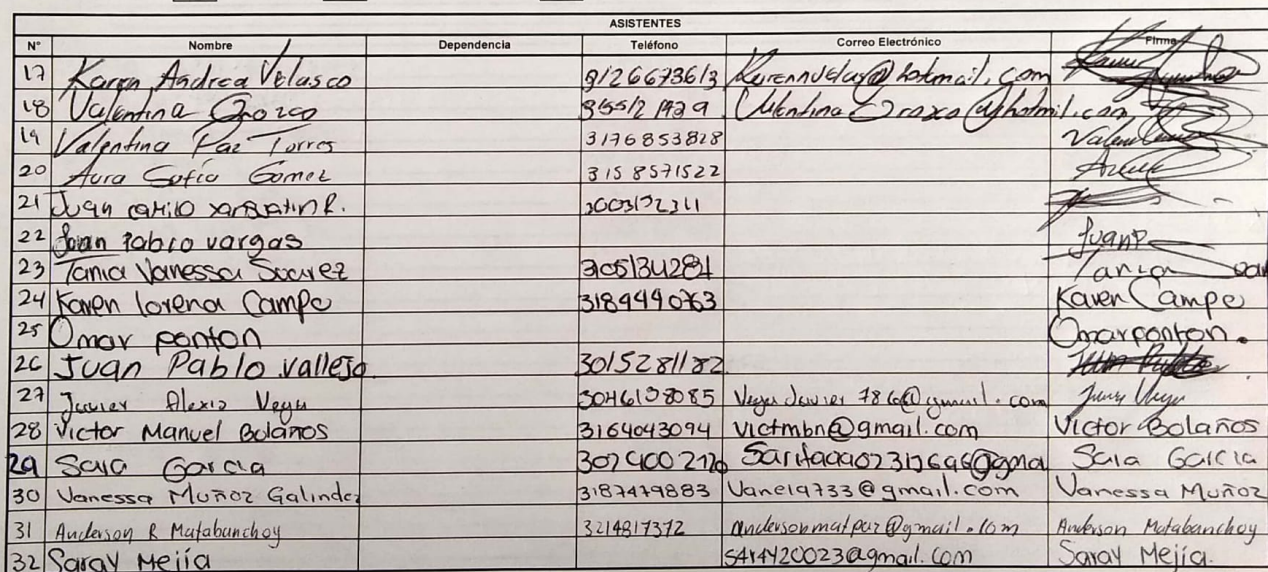 ASISTENTES
N° Nombre Dependencia Teléfono Correo Electrónico Firma
17 Karen Andrea Velasco 3126673613 Karennvelas@hotmail.com
18 Valentina Orozco Valentina Orozco@hotmil.com
19 Valentina Paz Torres 3176853828
20 Aura Sofía Gomez 3158571522
21 Juan camilo
22 Juan Pablo vargas JuanP
23 Tania Vanessa Suarez 305134284 Tania
24 Karen lorena Campo 3184440763 Karen Campo
25 Omar ponton Omar ponton.
26 Juan Pablo vallejo 3015281182
27 Javier Alexis Vega 3046138085 Vega Javier 786@gmail.com Javier Vega
28 Victor Manuel Bolaños 3164043094 victmbn@gmail.com Victor Bolaños
29 Sara Garcia Sara Garcia
30 Vanessa Muñoz Galindez 3187479883 Vane19733@gmail.com Vanessa Muñoz
31 Anderson R Matabanchoy 3214817372 andersonmatpaz@gmail.com Anderson Matabanchoy
32 Saray Mejía s414420023@gmail.com Saray Mejía.